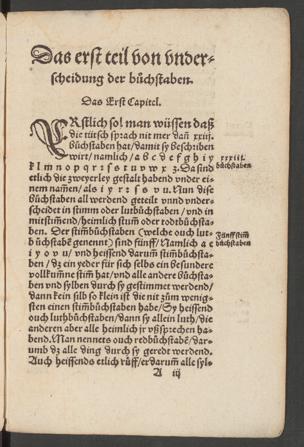 Das erst teil von vnder-
scheidung der bůchstaben.
Das Erst Capitel.
ERstlich sol man wüssen daß
die tütsch sprach nit mer dañ xxiij.
bůchstaben hat / damit sy beschriben
wirt / namlich / a b c d e f g h i y
k l m n o p q r z s t u v w x z. Da sind
etlich die zweyerley gestalt habend vnder einem
nam̃en / als i y r z s s v u. Nun dise
bůchstaben all werdend geteilt vnnd vnder-
scheidet in stimm oder lutbůchstaben / vnd in
mitstimend / heimlich stum̃ oder rodtbůchsta-
ben. Der stim̃bůchstaben (welche ouch lut-
bůchstabẽ genennt) sind fünff / Namlich a e
i y o v u / vnd heissend darum̃ stim̃bůchsta-
ben / dz ein yeder für sich selbs ein besundere
vollkum̃ne stim̃ hat / vnd alle andere bůchsta-
ben vnd sylben durch sy gestimmet werdend /
dann kein silb so klein ist die nit zům wenig-
sten einen stim̃bůchstaben habe / Sy heissend
ouch luthbůchstaben / dann sy allein luth / die
anderen aber alle heimlich ir vßsprechen ha-
bend. Man nennets ouch redbůchstabẽ / dar-
umb dz alle ding durch sy geredt werdend.
Auch heissends etlich růff / er darum̃ alle syl-
A iij
xxiii.
bůchstaben
Fünff stim̃
bůchstaben